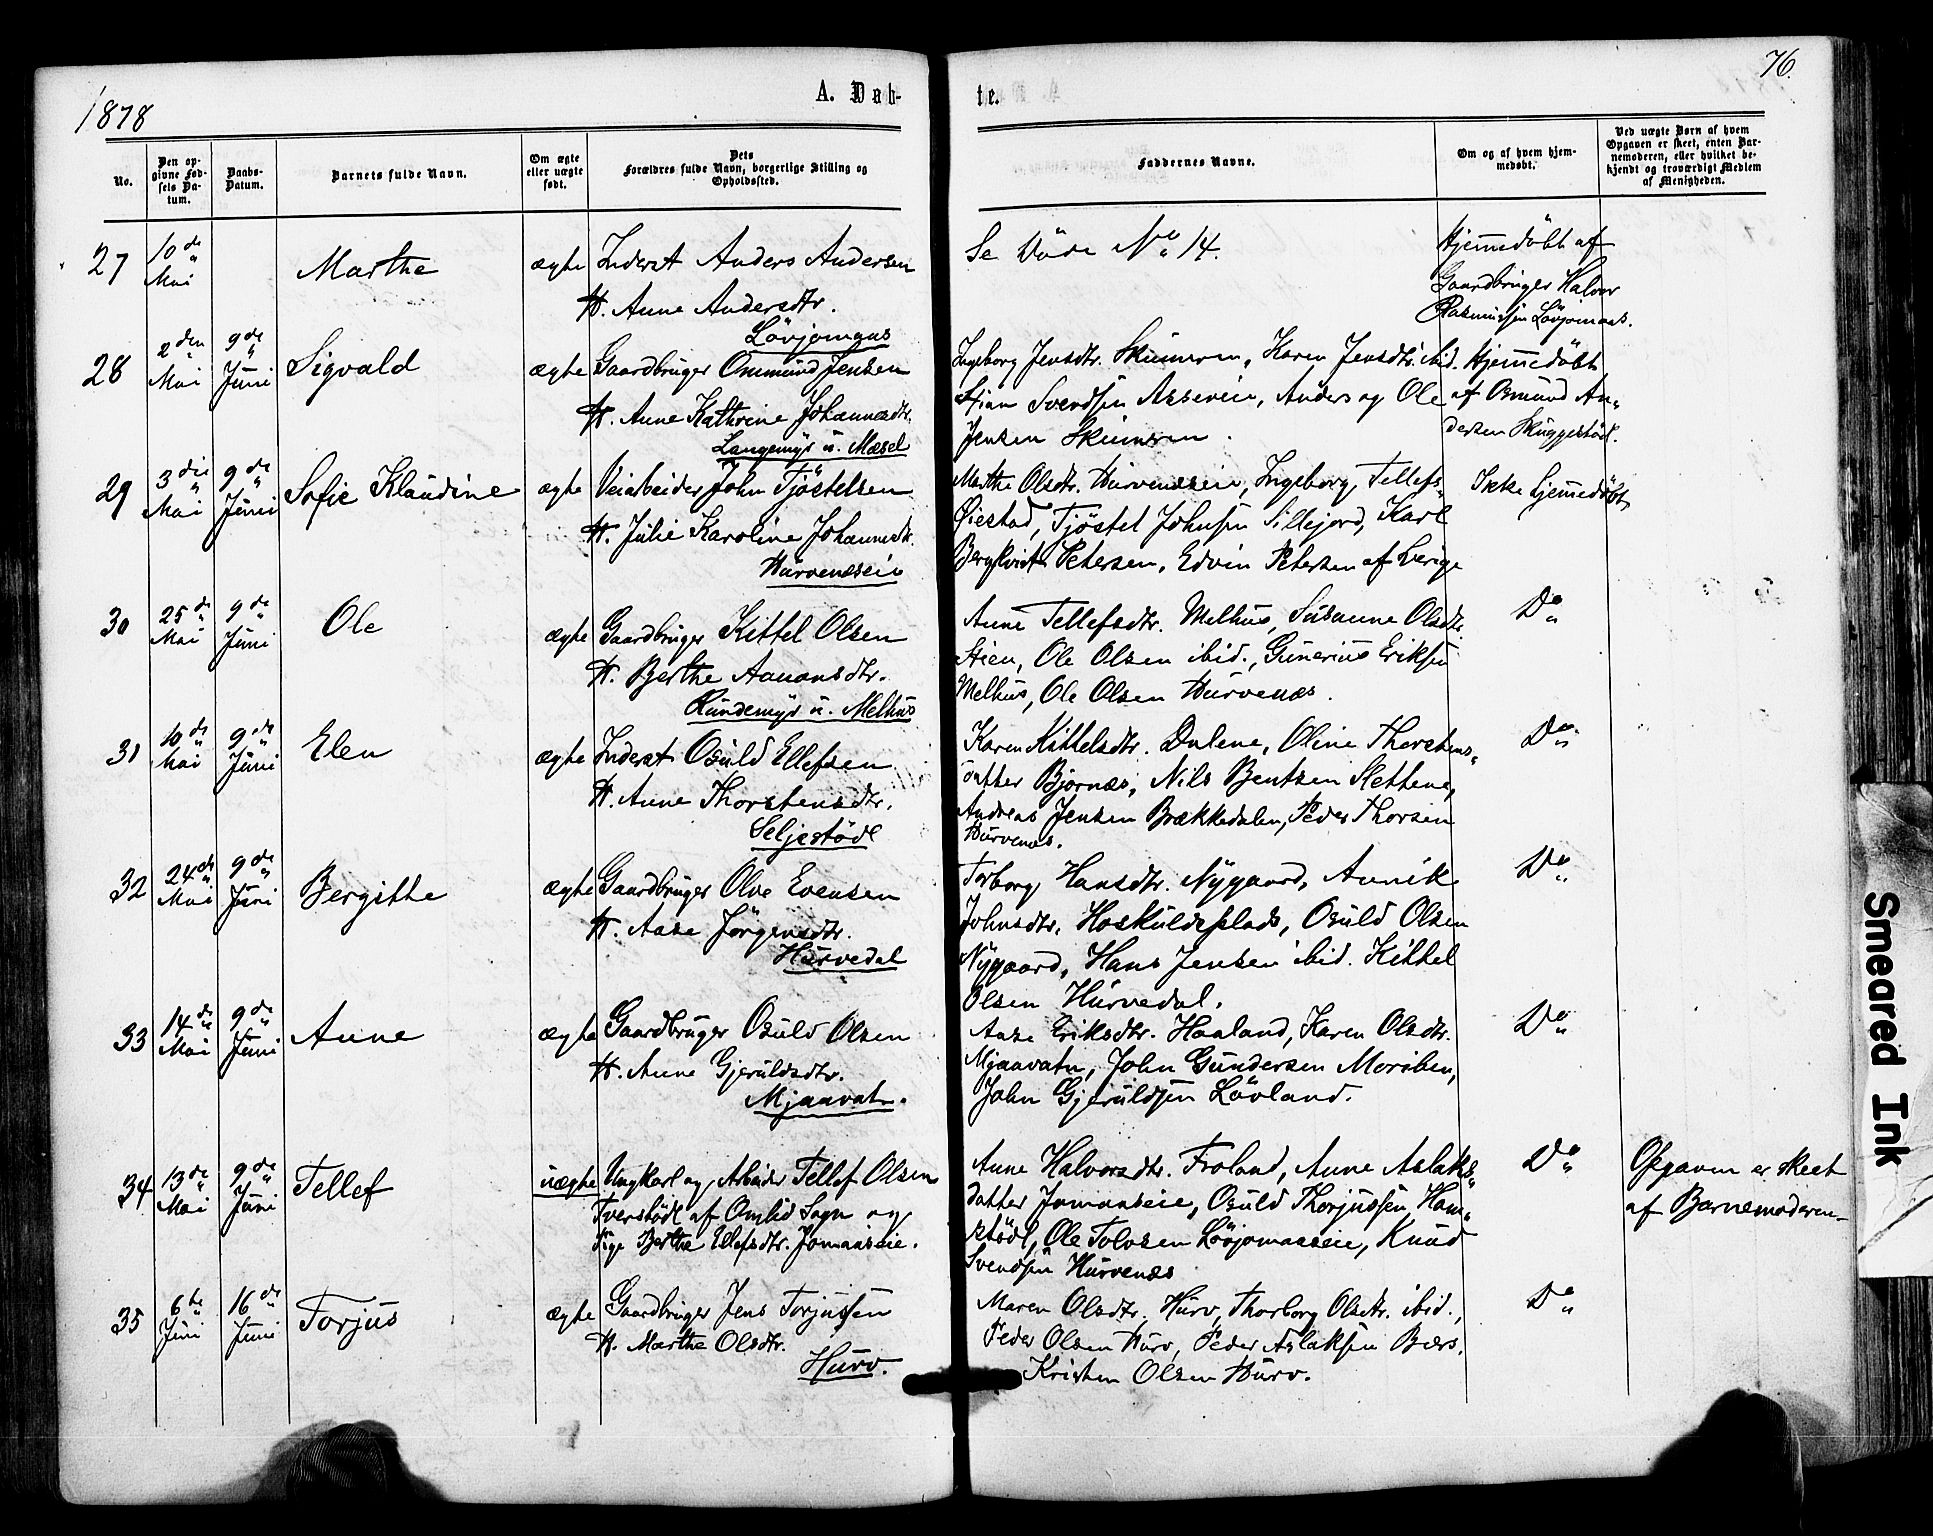 1878
A. Døb-
te.
76.
No.
Den op-
givne Fød-
sels Da-
tum.
Daabs-
Datum.
Barnets fulde Navn.
Om ægte
eller uægte
født.
Dets
Forældres fulde Navn, borgerlige Stilling og
Opholdssted.
Faddernes Navne.
Om og af hvem hjem-
medøbt.
Ved uægte Børn af hvem
Opgaven er skeet, enten Bar-
nemoderen, eller hvilket be-
kjendt og troværdigt Medlem
af Menigheden.
27
10 de
Mai
Marthe
ægte
Inderst Anders Andersen
H. Anne Andersdtr.
Lövjomaas
Se Döde No 14.
Hjemedöbt af
Gaardbruger Halvor
Rasmussen Lövjomaas.
28
2 den
Mai
9 de
Juni
Sigvald
ægte
Gaardbruger Ommund Jensen
H. Anne Kathrine Johannesdtr.
Langemyr u. Mæsel
Ingeborg Jensdtr. Skiumren, Karen Jensdtr. ibid.
Svendsen Asseveie, Anders og Ole
Jensen Skiumren.
Hjemedöbt
af Osmund An-
dersen Skuggestöl.
29
3 die
Mai
9 de
Juni
Sofie Klaudine
ægte
Veiarbeider John Tjöstelsen
H. Julie Karoline Johannesdtr.
Hurvenæseie
Marthe Olsdtr. Hurvenæseie, Ingeborg Tellefs-
Öiestad, Tjöstel Johnsen Sillejord, Karl
Bergkvist Petersen, Edvin Petersen af Sverige
Ikke hjemedöbt
30
25 de
Mai
9 de
Juni
Ole
ægte
Gaardbruger Kittel Olsen
H. Berthe Aanonsdtr.
Rundemyr u. Melhus
Anne Tellefsdtr. Melhus, Susanne Olsdtr.
Stien, Ole Olsen ibid., Gunerius Eriksen
Melhus, Ole Olsen Hurvenæs.
Do
31
10 de
Mai
9 de
Juni
Elen
ægte
Inderst Osuld Ellefsen
H. Anne Thorstensdtr.
Seljestödl
Karen Kittelsdtr. Dalene, Oline Thorstens-
datter Bjornæs, Nils Bentsen Slettene,
Andreas Jensen Brækkedalen, Peder Thorsen
Hurvenæs.
Do
32
24 de
Mai
9 de
Juni
Bergitte
ægte
Gaardbruger Olve Evensen
H. Aase Jörgensdtr.
Hurvedal
Torborg Hansdtr. Nygaard, Annik
Johnsdtr. Hoskuldsplads, Osuld Olsen
Nygaard, Hans Jensen ibid. Kittel
Olsen Hurvedal.
Do
33
14 de
Mai
9 de
Juni
Anne
ægte
Gaardbruger Osuld Olsen
H. Anne Gjeruldsdtr.
Mjaavatn.
Aase Eriksdtr. Haaland, Karen Olsdtr.
Mjaavatn, John Gundersen Moriben,
John Gjeruldsen Lövland.
Do
34
13 de
Mai
9 de
Juni
Tellef
uægte
Ungkarl og Arbeider Tellef Olsen
Tverstödl af Omlid Sogn og
Pige Berthe Ellefsdtr. Jomaaseie.
Anne Halvorsdtr. Froland, Anne Aslaks-
datter Jomaaseie, Osuld Thorjussen, Ham-
stödl, Ole Tolvsen Lövjomaaseie, Knud
Svendsen Hurvenæs
Do
Opgaven er skeet
af Barnemoderen
35
6 te
Juni
16 de
Juni
Torjus
ægte
Gaardbruger Jens Torjussen
H. Marthe Olsdtr.
Hurv.
Maren Olsdtr. Hurv, Thorborg Olsdtr. ibid.,
Peder Olsen Hurv, Peder Aslaksen Bærs.
Kristen Olsen Hurv.
Do
Smeared Ink